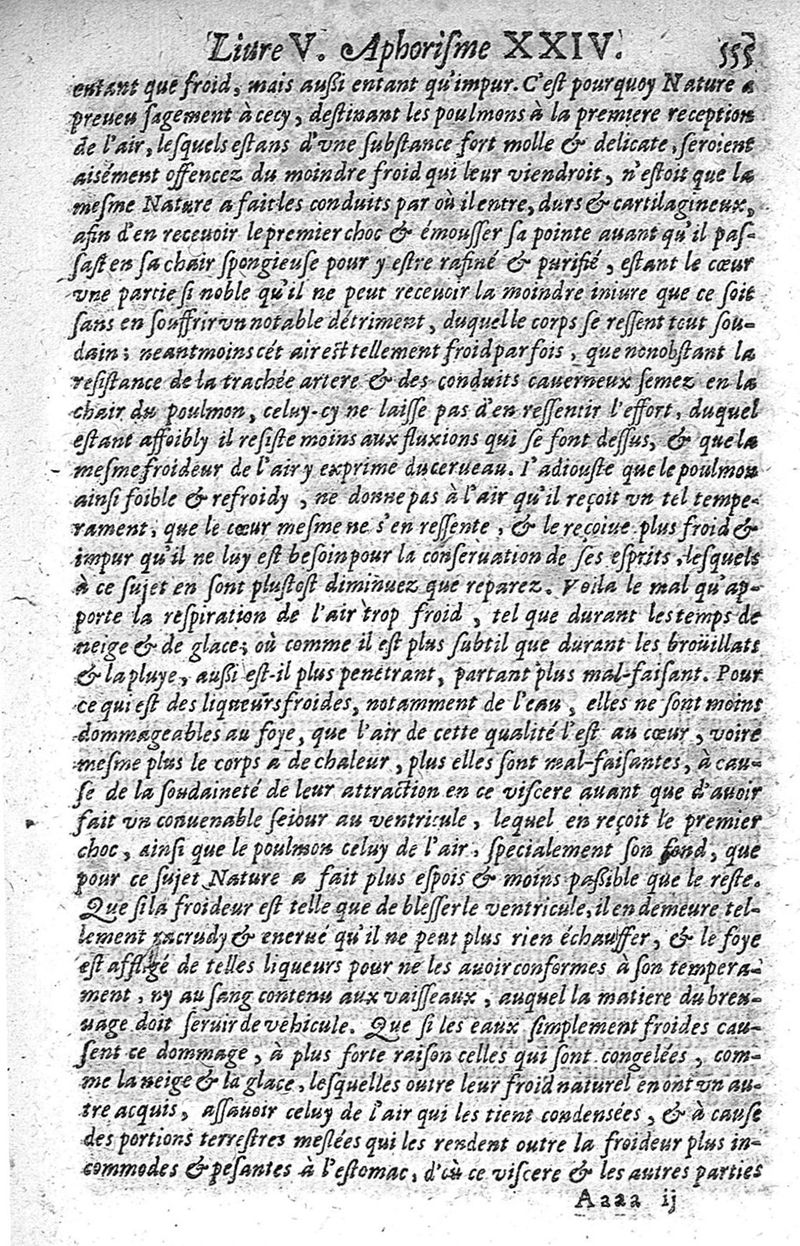 Liure V. Aphoriſme XXIV. 555
entant que froid, mais außi entant qu'impur. C'eſt pourquoy Nature a
preueu ſagement à cecy, deſtinant les poulmons à la premiere reception
de l'air, leſquels eſtans d'vne ſubſtance fort molle & delicate, ſeroient
aisément offencez du moindre froid qui leur viendroit, n'eſtoit que la
meſme Nature a fait les conduits par où il entre, durs & cartilagineux,
afin d'en receuoir le premier choc & émouſſer ſa pointe auant qu'il paſ-
ſaſt en ſa chair ſpongieuſe pour y eſtre rafiné & purifié, eſtant le cœur
vne partie ſi noble qu'il ne peut receuoir la moindre iniure que ce ſoit
ſans en ſouffrir vn notable détriment, duquel le corps ſe reſſent tout ſou-
dain; neantmoins cét air eſt tellement froid par fois, que nonobſtant la
reſiſtance de la trachée artere & des conduits cauerneux ſemez en la
chair du poulmon, celuy-cy ne laiſſe pas d'en reſſentir l'effort, duquel
eſtant affoibly il reſiſte moins aux fluxions qui ſe font deſſus, & que la
meſme froideur de l'air y exprime du cerueau. I'adiouſte que le poulmon
ainſi foible & refroidy, ne donne pas à l'air qu'il reçoit vn tel tempe-
rament, que le cœur meſme ne s'en reſſente, & le reçoiue plus froid &
impur qu'il ne luy eſt beſoin pour la conſeruation de ſes eſprits, leſquels
à ce ſujet en ſont pluſtoſt diminuez que reparez. Voila le mal qu'ap-
porte la reſpiration de l'air trop froid, tel que durant les temps de
neige & de glace; où comme il eſt plus ſubtil que durant les broüillats
& la pluye, außi eſt-il plus penetrant, partant plus mal-faiſant. Pour
ce qui eſt des liqueurs froides, notamment de l'eau, elles ne ſont moins
dommageables au foye, que l'air de cette qualité l'eſt au cœur, voire
meſme plus le corps a de chaleur, plus elles ſont mal-faiſantes, à cau-
ſe de la ſoudaineté de leur attraction en ce viſcere auant que d'auoir
fait vn conuenable ſeiour au ventricule, lequel en reçoit le premier
choc, ainſi que le poulmon celuy de l'air, ſpecialement ſon fond, que
pour ce ſujet Nature a fait plus eſpois & moins paßible que le reſte.
Que ſi la froideur eſt telle que de bleſſer le ventricule, il en demeure tel-
lement & enerué qu'il ne peut plus rien échauffer, & le foye
eſt affligé de telles liqueurs pour ne les auoir conformes à ſon tempera-
ment, ny au ſang contenu aux vaiſſeaux, auquel la matiere du breu-
uage doit ſeruir de véhicule. Que ſi les eaux ſimplement froides cau-
ſent ce dommage, à plus forte raiſon celles qui ſont congelées, com-
me la neige & la glace, leſquelles outre leur froid naturel en ont vn au-
tre acquis, aſſauoir celuy de l'air qui les tient condensées, & à cauſe
des portions terreſtres meſlées qui les rendent outre la froideur plus in-
commodes & peſantes à l'eſtomac, d'où ce viſcere & les autres parties
Aaaa ij